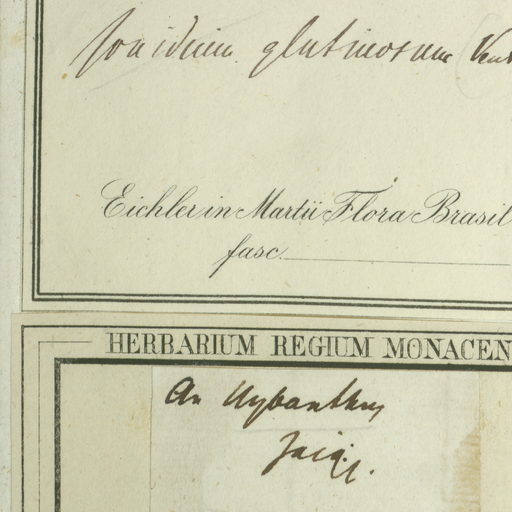 Jonidium glutinosum Vent
Eichler in Martii Flora Brasil
fasc.
HERBARIUM REGIUM MONACEN
An Hybanthus
Jacq.